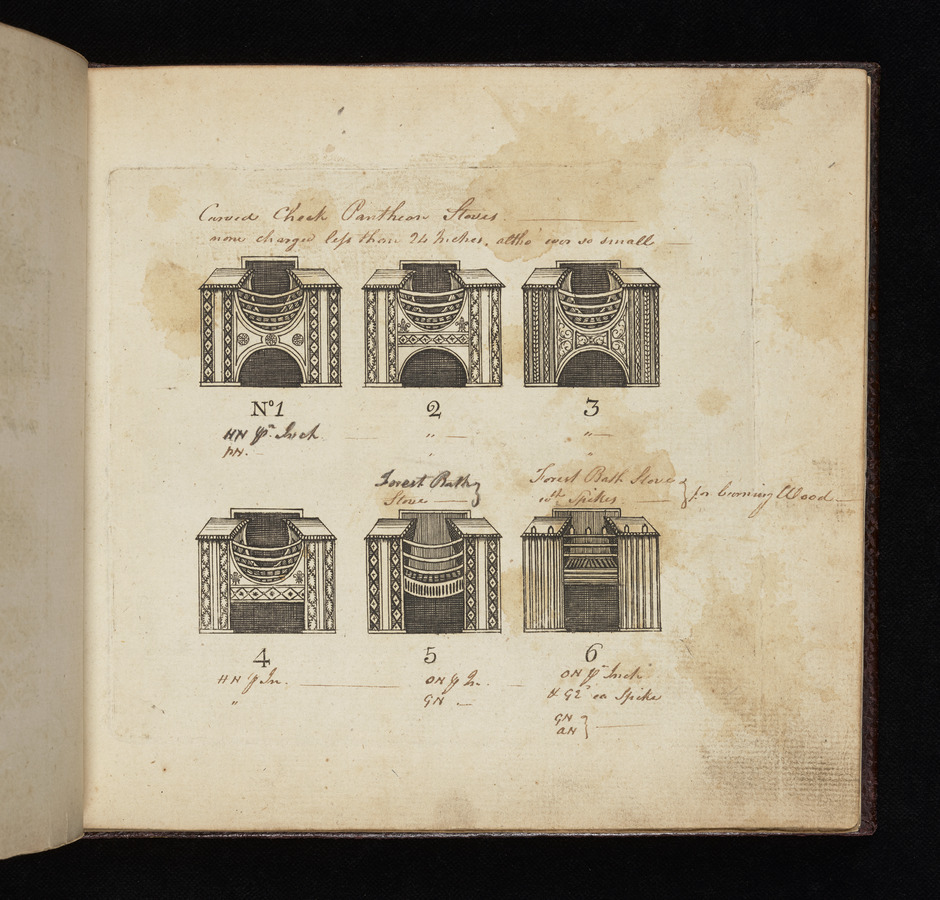 Carved Cheek Pantheon Stoves
none charged leſs than 24 Inches, altho' ever so small
No 1 2 3
HN pr Inch " "
PN. " "
Forest Bath Stove
Forest Bath Stove with Spikes } for burning Wood
4 5 6
HN p In. ON p In. ON pr Inch
" GN " & G2 ea Spike
GN
AN